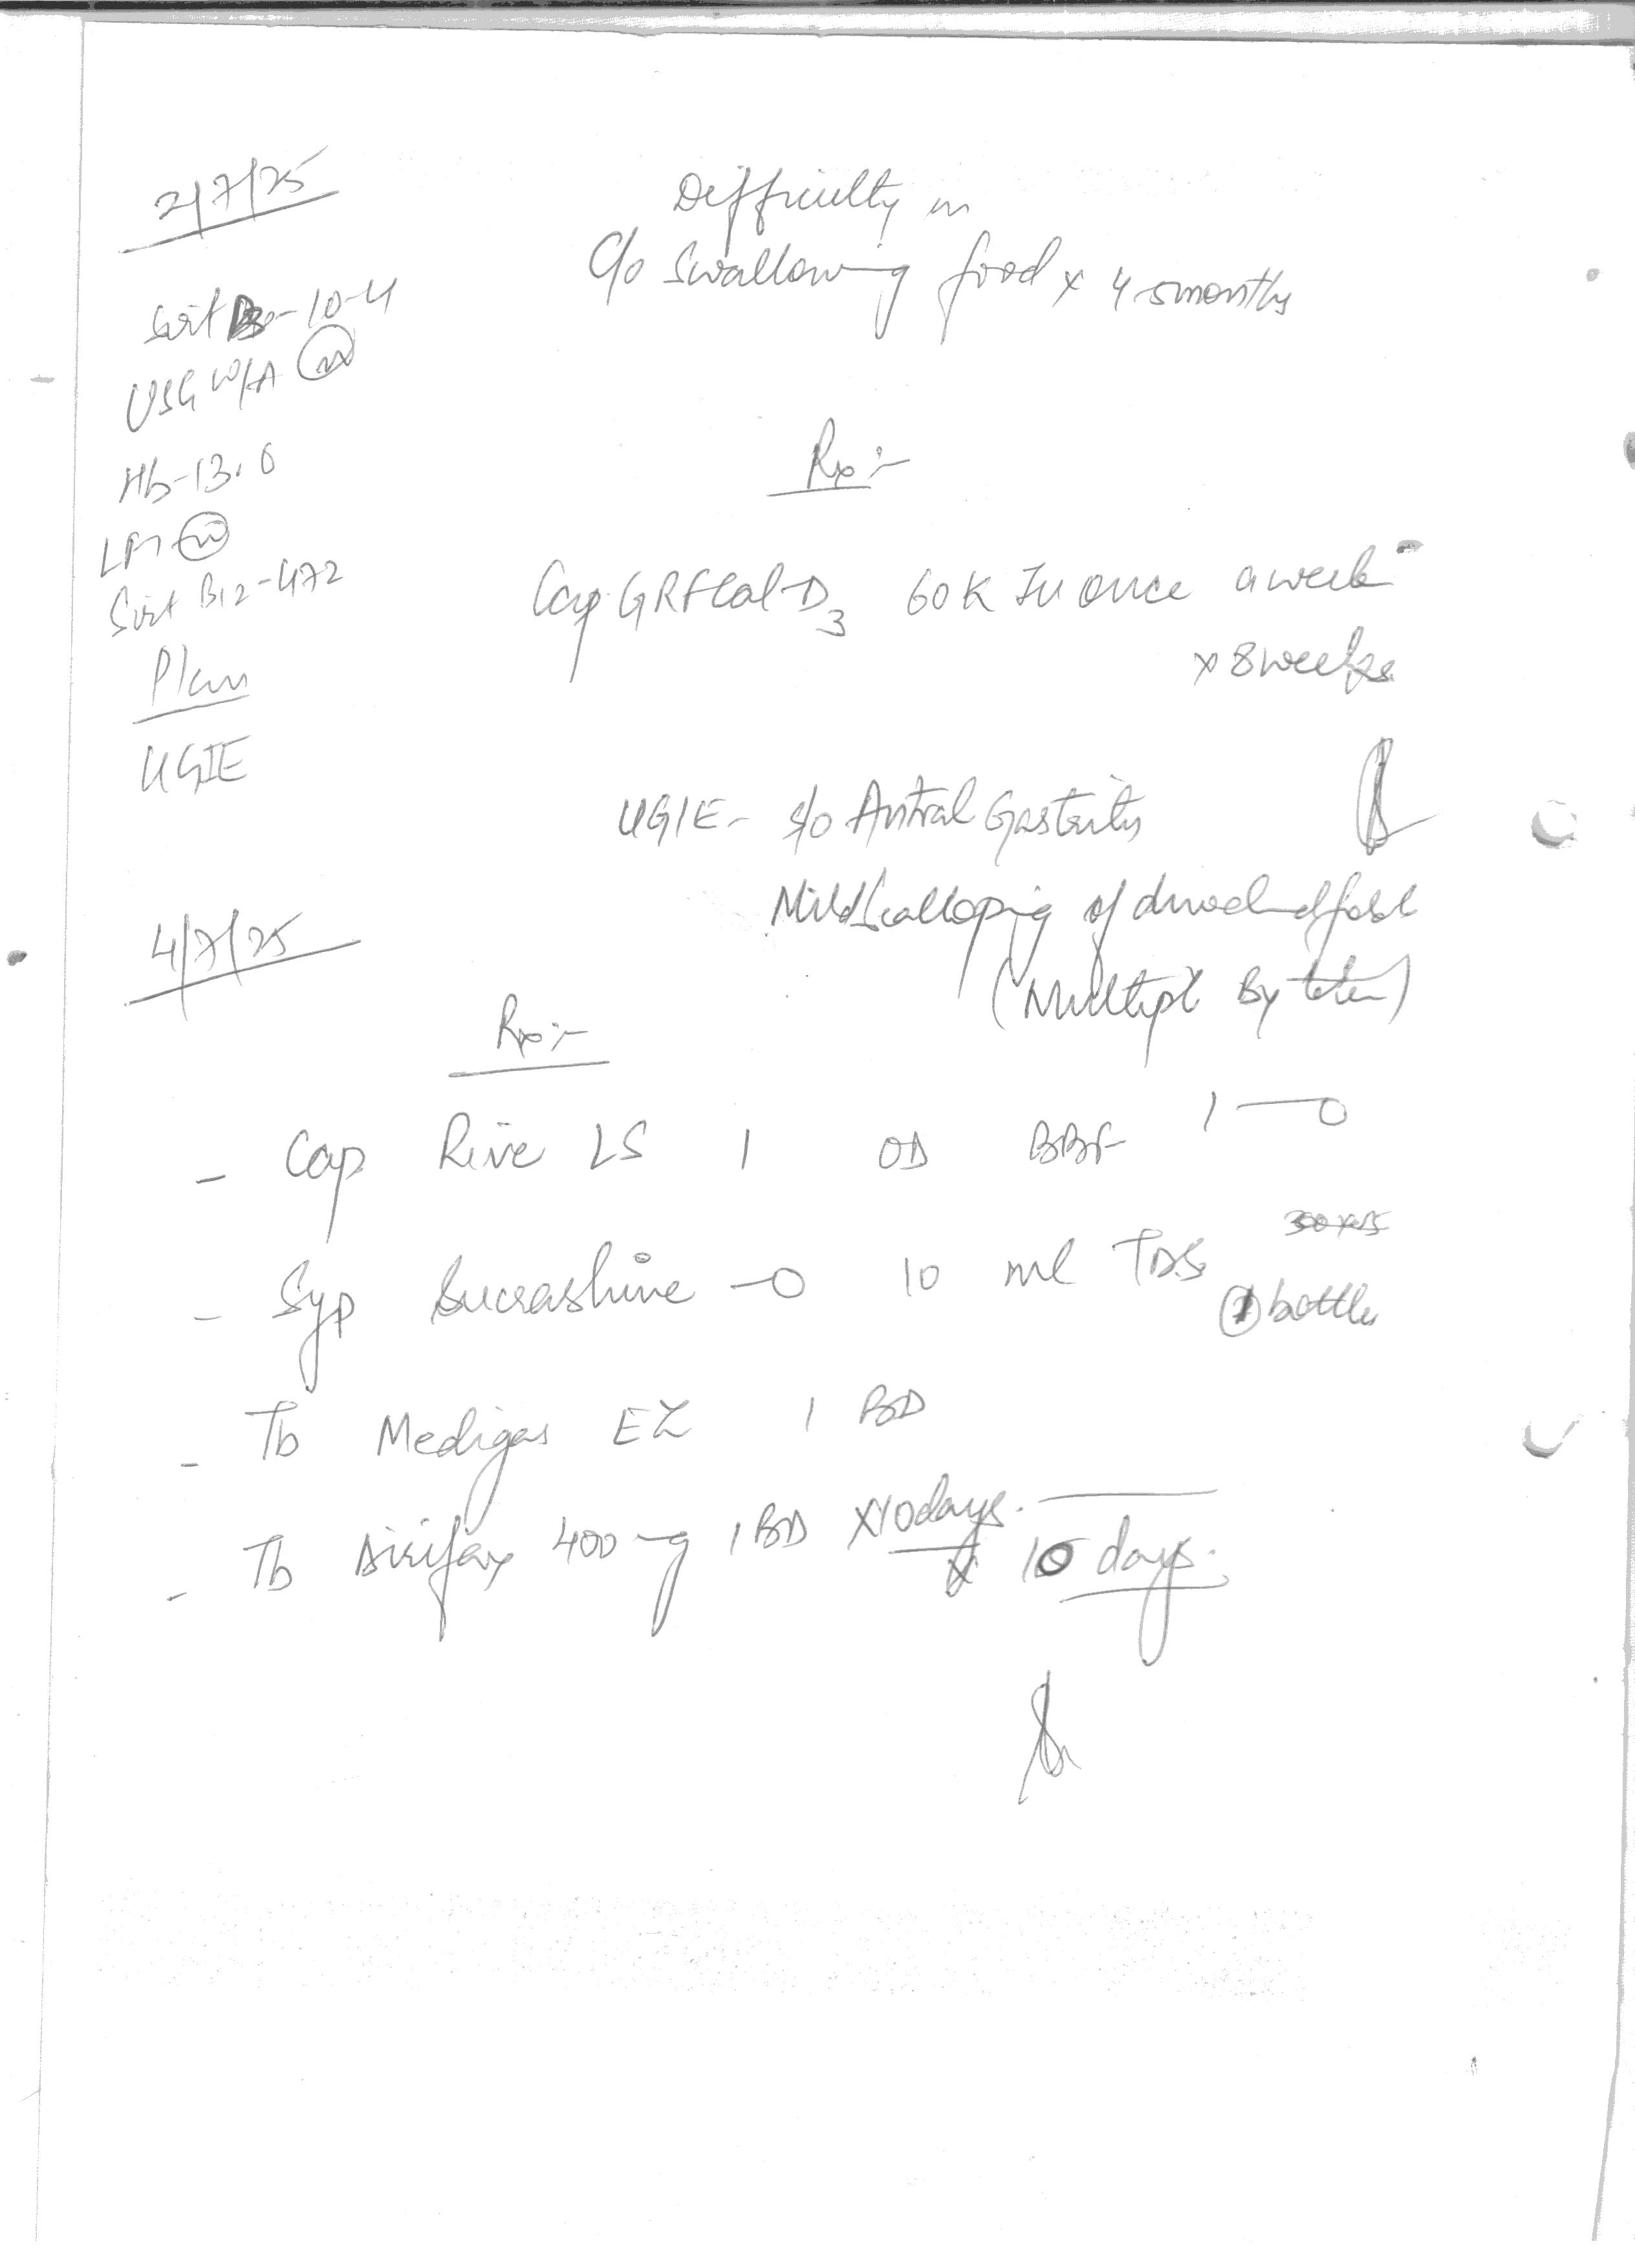 2/7/25
Difficulty in
C/o Swallowing food x 4-5 months
Vit D3 - 10.4
USG W/A (N)
Hb - 13.6
(N)
Vit B12 - 472
Plan
UGIE
Rx :-
Cap D3 60K IU once a week
x 8 weeks
UGIE - s/o Antral Gastritis
Mild Scalloping of duodenal fold
(Multiple Bx taken)
4/7/25
Rx :-
- Cap LS 1 OD BBF
- Syp 10 ml TDS
bottle
- Tb Medigas EZ 1 BD
- Tb 400 mg 1 BD x 10 days.
x 10 days.